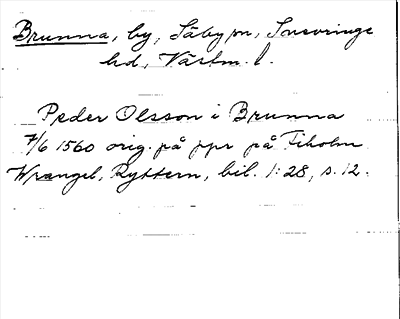 Brunna, by, Säby sn, Snevringe
hd, Västm. l.
Peder Olsson i Brunna
7/6 1560 orig. på ppr på Fiholm
Wrangel, Ryttern, bil. 1:28, s. 12.